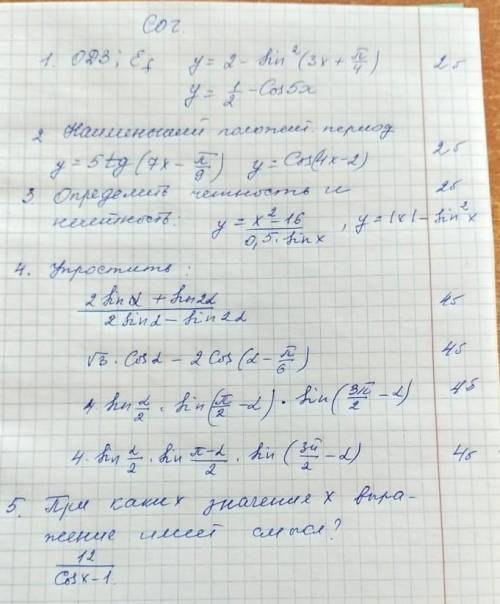 СОЧ.
1. ОДЗ; Ef y = 2 - sin²(3x + π/4) 2б
y = 1/2 - Cos5x
2 Наименьший положит. период
y = 5tg(7x - π/9) y = Cos(4x-2) 2б
3 Определить четность и 2б
нечетность: y = (x²-16)/(0,5·sinx), y = |x| - sin²x
4. Упростить:
(2sinα + sin2α)/(2sinα - sin2α) 4б
√3·Cosα - 2Cos(α - π/6) 4б
4·sin α/2 · sin(π/2 - α) · sin(3π/2 - α) 4б
4·sin α/2 · sin (π-α)/2 · sin(3π/2 - α) 4б
5. При каких значение х выра-
жение имеет смысл?
12/(Cosx-1)